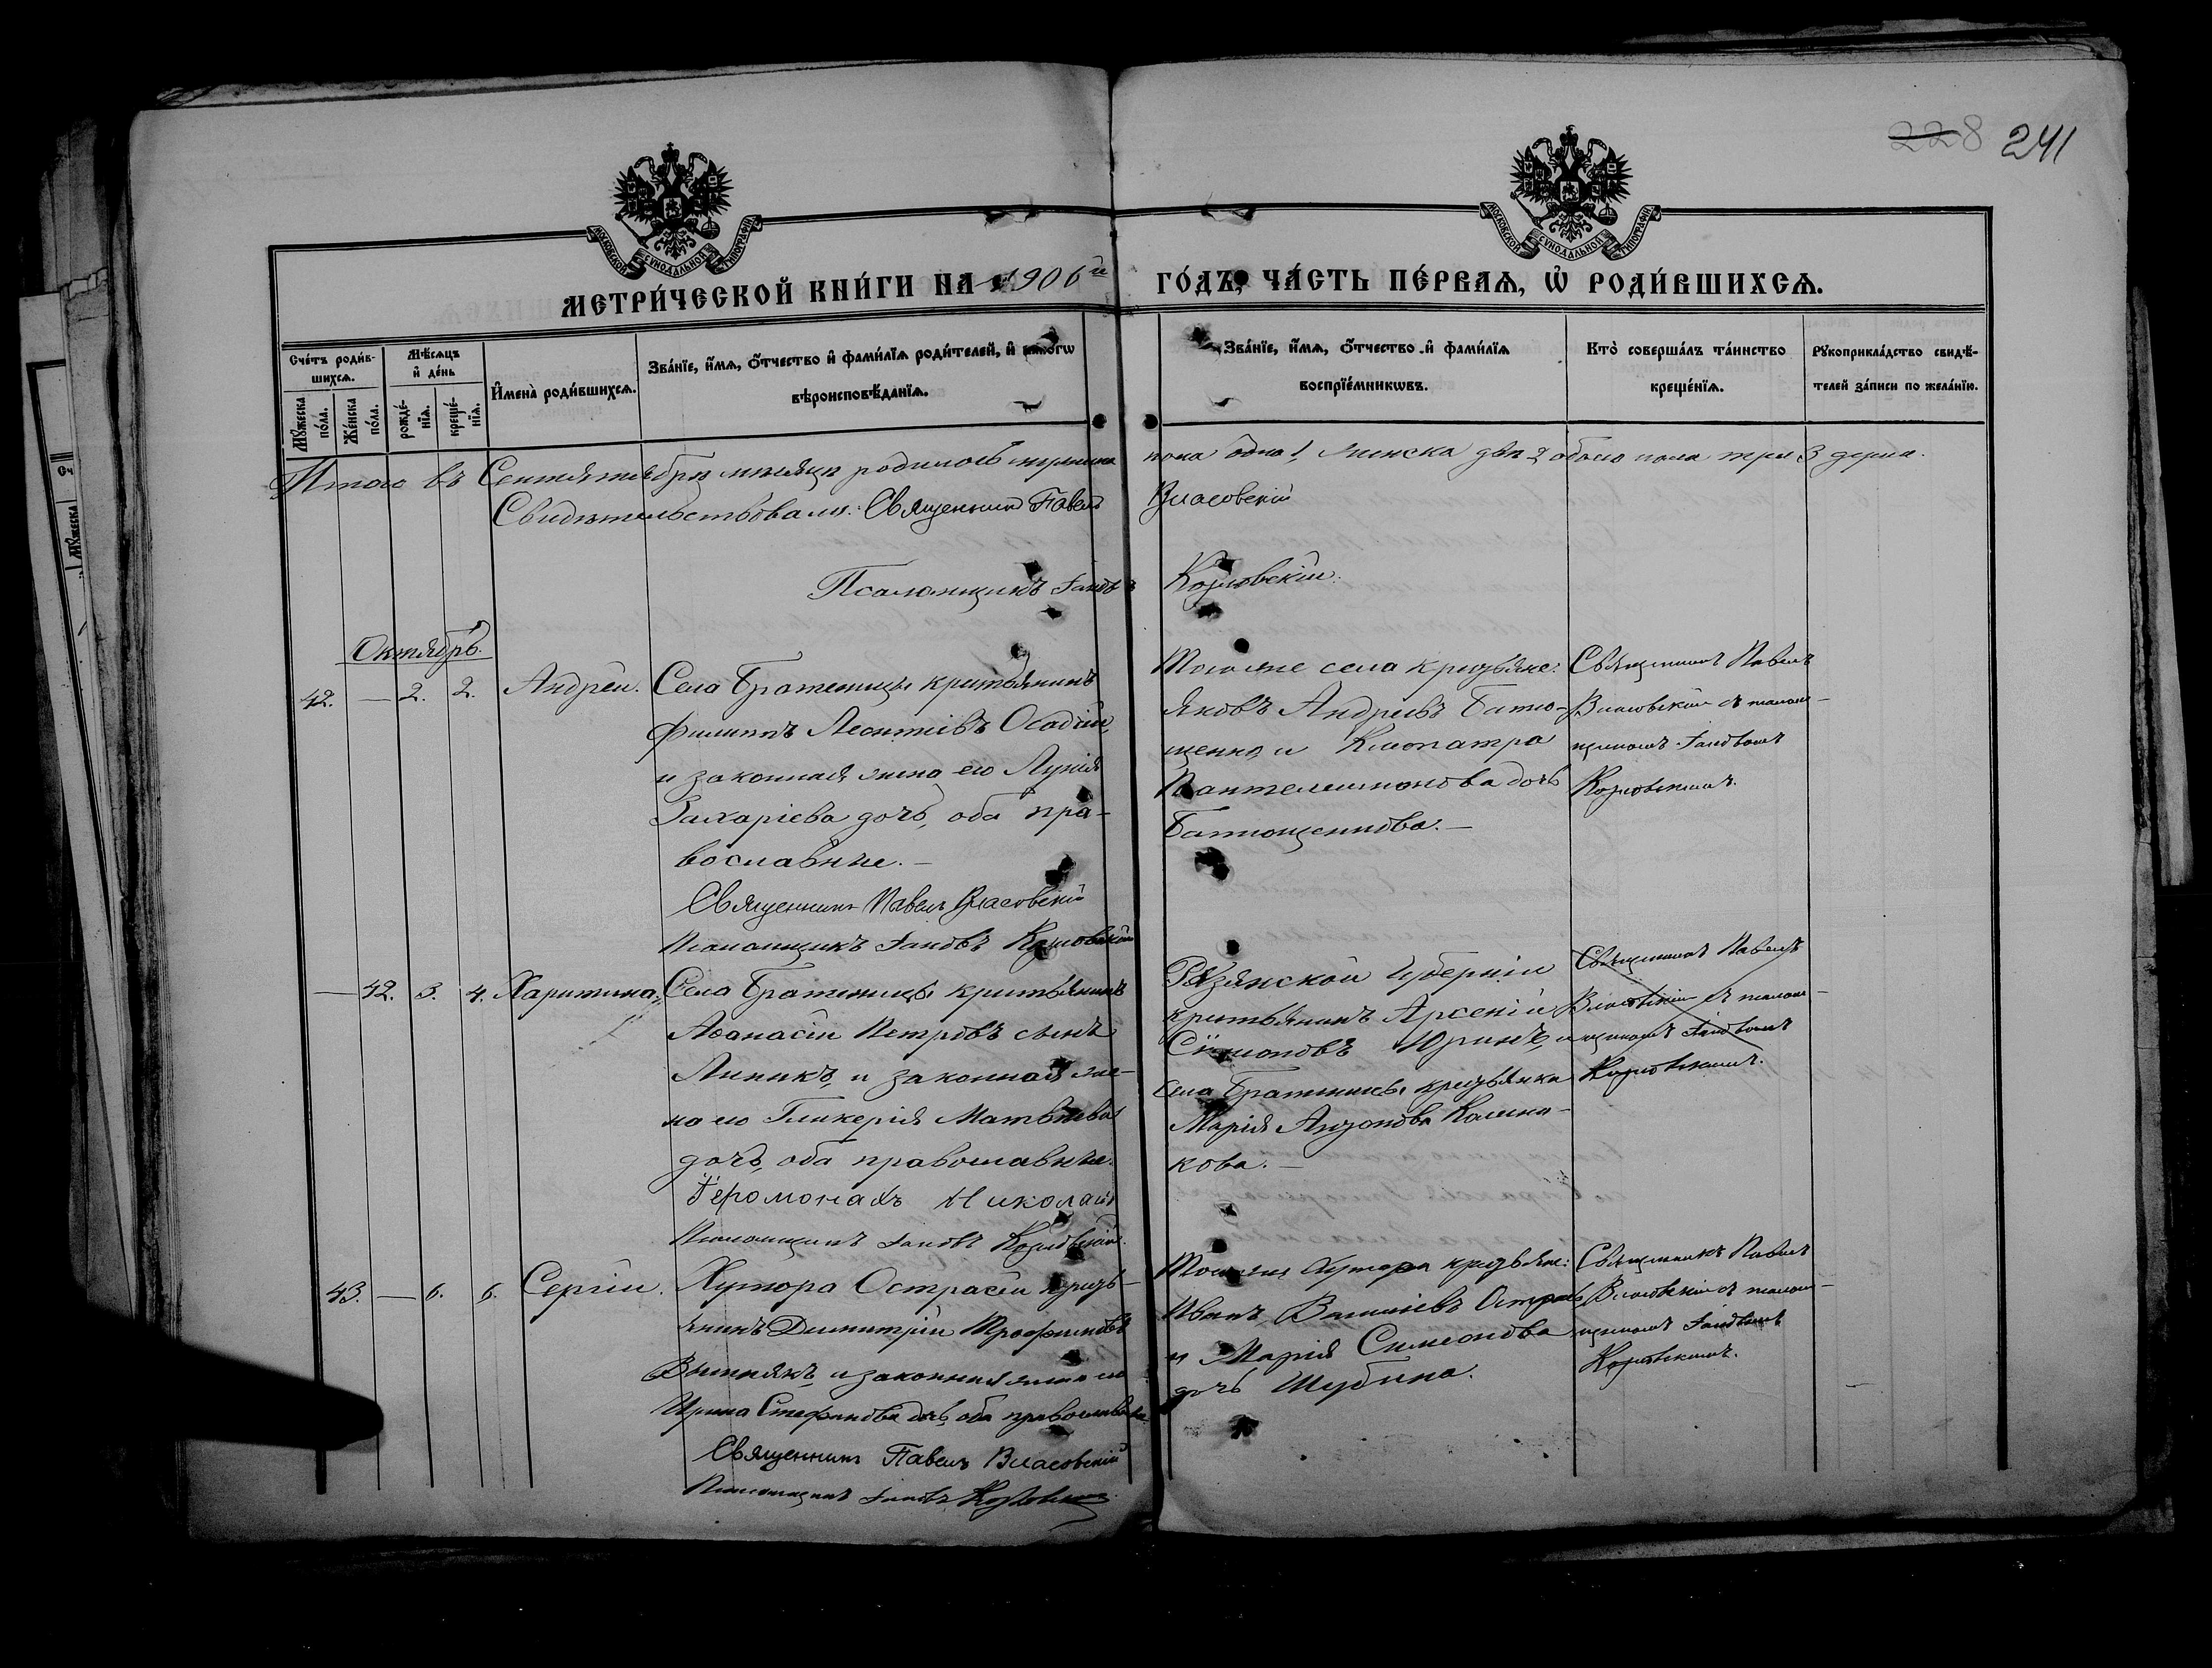 228 241
МОСКОВСКОЙ СУНОДАЛЬНОЙ ТИПОГРАФІИ
МОСКОВСКОЙ СУНОДАЛЬНОЙ ТИПОГРАФІИ
МЕТРИ́ЧЕСКОЙ КНИ́ГИ НА 1906й ГО́ДЪ, ЧА́СТЬ ПЕ́РВАѦ, Ѡ҆ РОДИ́ВШИХСѦ.
Сче́тъ роди́в-
шихсѧ.
Мꙋ́жеска по́ла.
Же́нска по́ла.
Мѣ́сѧцъ и҆ де́нь
рожде́-нїѧ.
креще́-нїѧ.
И҆мена̀ роди́вшихсѧ.
Зва́нїе, и҆́мѧ, ѻ҆́тчество и҆ фами́лїѧ роди́телей, и҆ како́гѡ
вѣроисповѣ́данїѧ.
Зва́нїе, и҆́мѧ, ѻ҆́тчество и҆ фами́лїѧ
воспрїе́мникѡвъ.
Кто̀ соверша́лъ та́инство
креще́нїѧ.
Рꙋкоприкла́дство свидѣ́-
телей за́писи по жела́нїю.
Итого въ Сентятябрѣ мѣсяцѣ родилось мужеска пола одно 1 женска два 2 обоего пола три 3 души.
Свидѣтельствовали: Священникъ Павелъ Власовскій
Псаломщикъ Іаковъ Козловскій.
Октябрь.
42. — 2. 2. Андрей.
Села Братеницы крестьянинъ
Филиппъ Леонтіевъ Осадчій,
и законная жена его Лукія
Захаріева дочь, оба пра-
вославные. —
Священникъ Павелъ Власовскій
Псаломщикъ Іаковъ Козловскій
Того же села крестьяне:
Яковъ Андреевъ Батю-
щенко и Клеопатра
Пантелеимонова дочь
Батющенкова. —
Священникъ Павелъ
Власовскій съ псалом-
щикомъ Іаковомъ
Козловскимъ.
— 42. 3. 4. Харитина.
Села Братеницы крестьянинъ
Аѳанасій Петровъ сынъ
Линикъ, и законная же-
на его Гликерія Матвѣева
дочь, оба православные.
Іеромонахъ Николай
Псаломщикъ Іаковъ Козловскій.
Рязянской Губерніи
крестьянинъ Арсеній
Сѵмоновъ Юринъ, и
села Братеницы крестьянка
Марія Антонова Калсна-
кова. —
Священникъ Павелъ
Власовскій съ псалом-
щикомъ Іаковомъ
Козловскимъ.
43. — 6. 6. Сергій.
Хутора Острасѣи кресть-
янинъ Димитрій Трофимовъ
Вытнякъ и законная жена его
Ирина Стефанова дочь, оба православные.
Священникъ Павелъ Власовскій
Псаломщикъ Іаковъ Козловскій
Того же Хутора крестьяне:
Иванъ Василіевъ
и Марія Симеонова
дочь Шубина.
Священникъ Павелъ
Власовскій съ псалом-
щикомъ Іаковомъ
Козловскимъ.